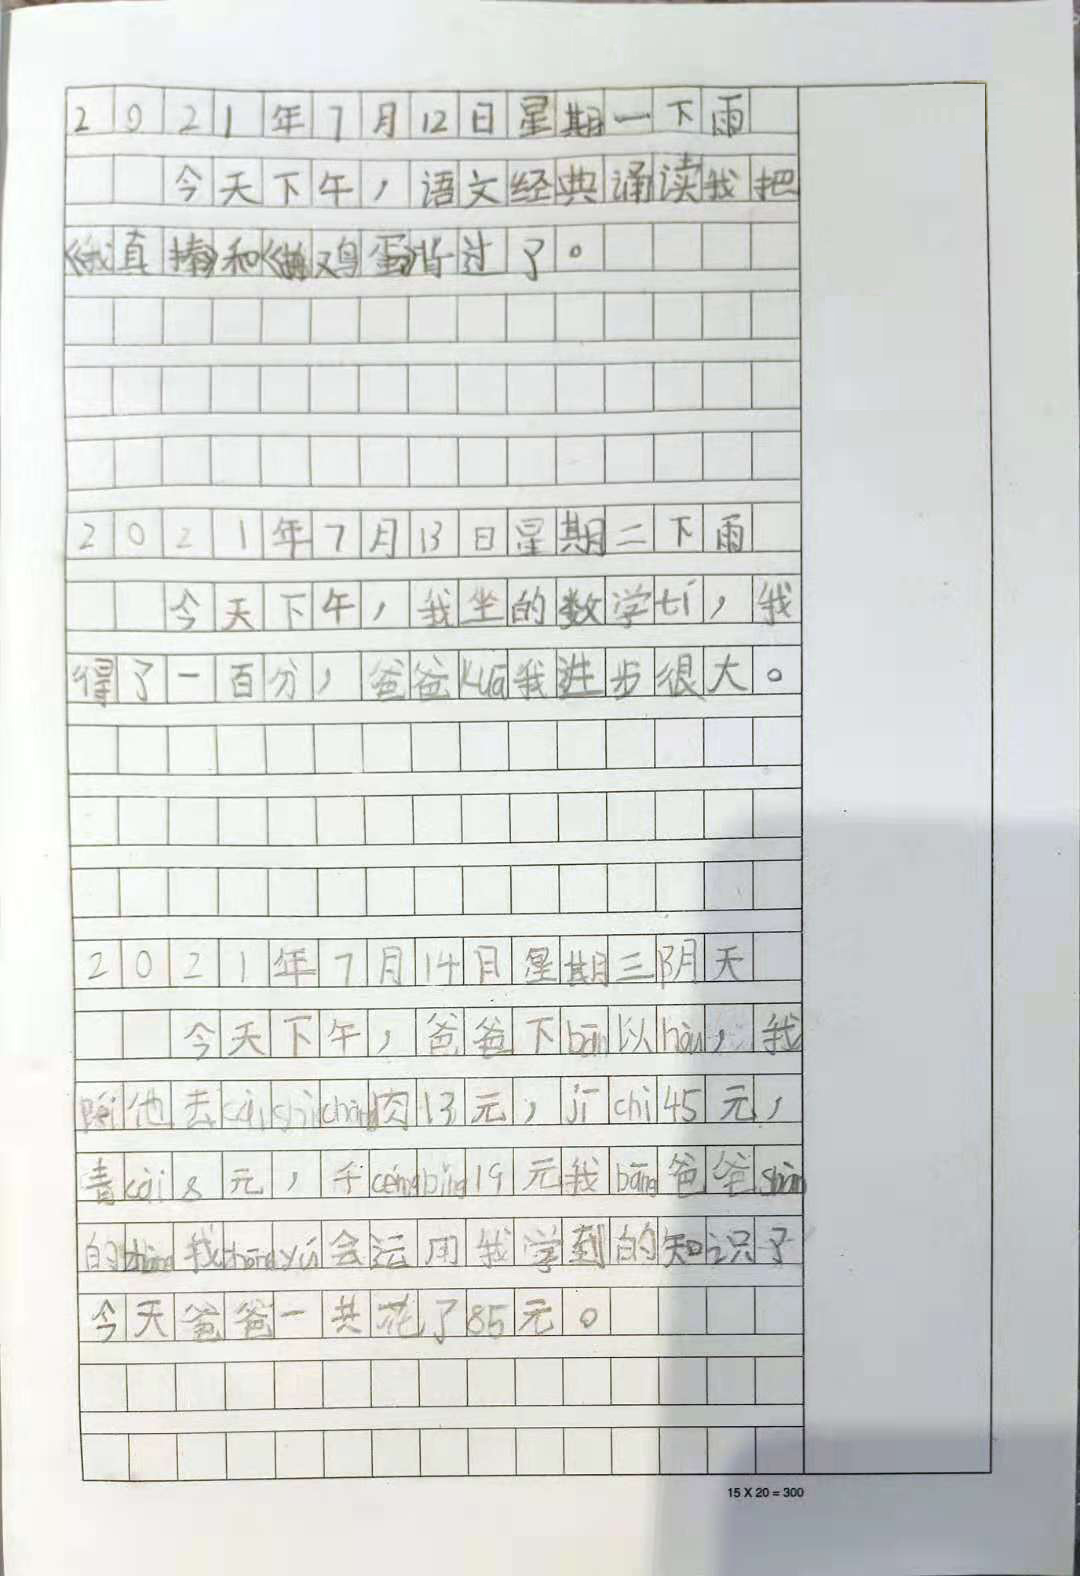 2021年7月12日星期一下雨
今天下午，语文经典诵读我把
《我真捧》和《鸡蛋》背过了。
2021年7月13日星期二下雨
今天下午，我坐的数学tí，我
得了一百分，爸爸kuā我进步很大。
2021年7月14日星期三阴天
今天下午，爸爸下bān以hòu，我
他去cài shì chǎng肉13元，jī chì 45元，
青cài 8元，千céng bǐng 19元我bāng爸爸suàn
的 我zhōng yú会运用我学到的知识了
今天爸爸一共花了85元。
15 X 20 = 300